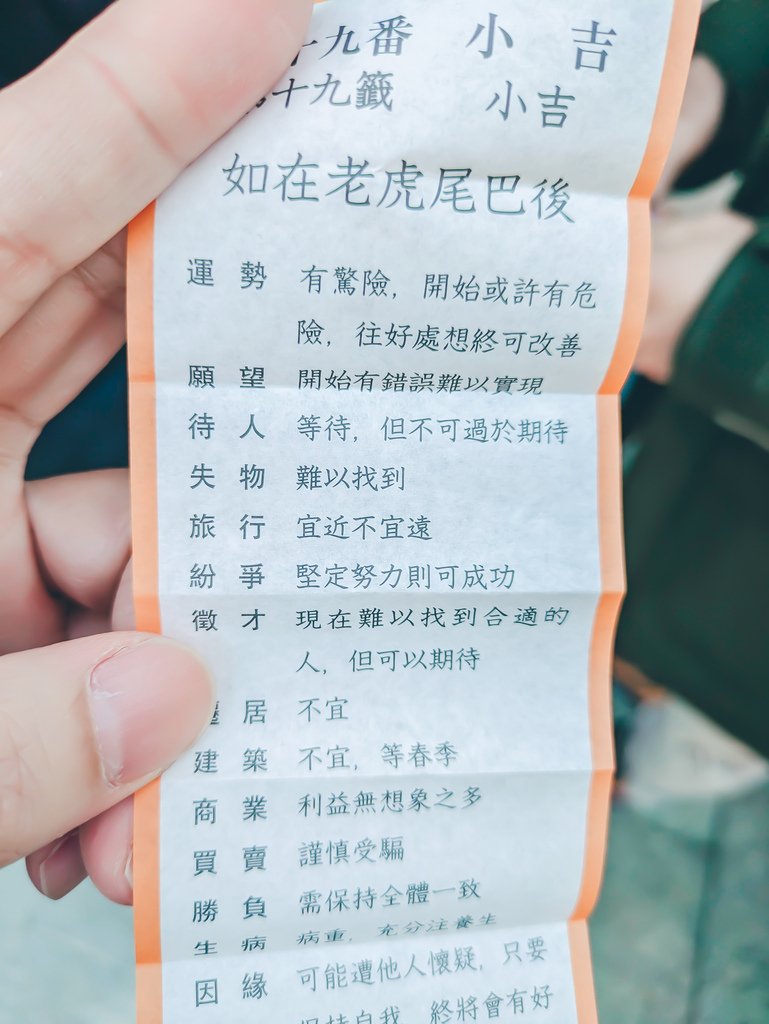 十九番 小 吉
十九籤 小吉
如在老虎尾巴後
運 勢 有驚險，開始或許有危
險，往好處想終可改善
願 望 開始有錯誤難以實現
待 人 等待，但不可過於期待
失 物 難以找到
旅 行 宜近不宜遠
紛 爭 堅定努力則可成功
徵 才 現在難以找到合適的
人，但可以期待
居 不宜
建 築 不宜，等春季
商 業 利益無想象之多
買 賣 謹慎受騙
勝 負 需保持全體一致
生 病 病重，充分注養生
因 緣 可能遭他人懷疑，只要
保持自我，終將會有好